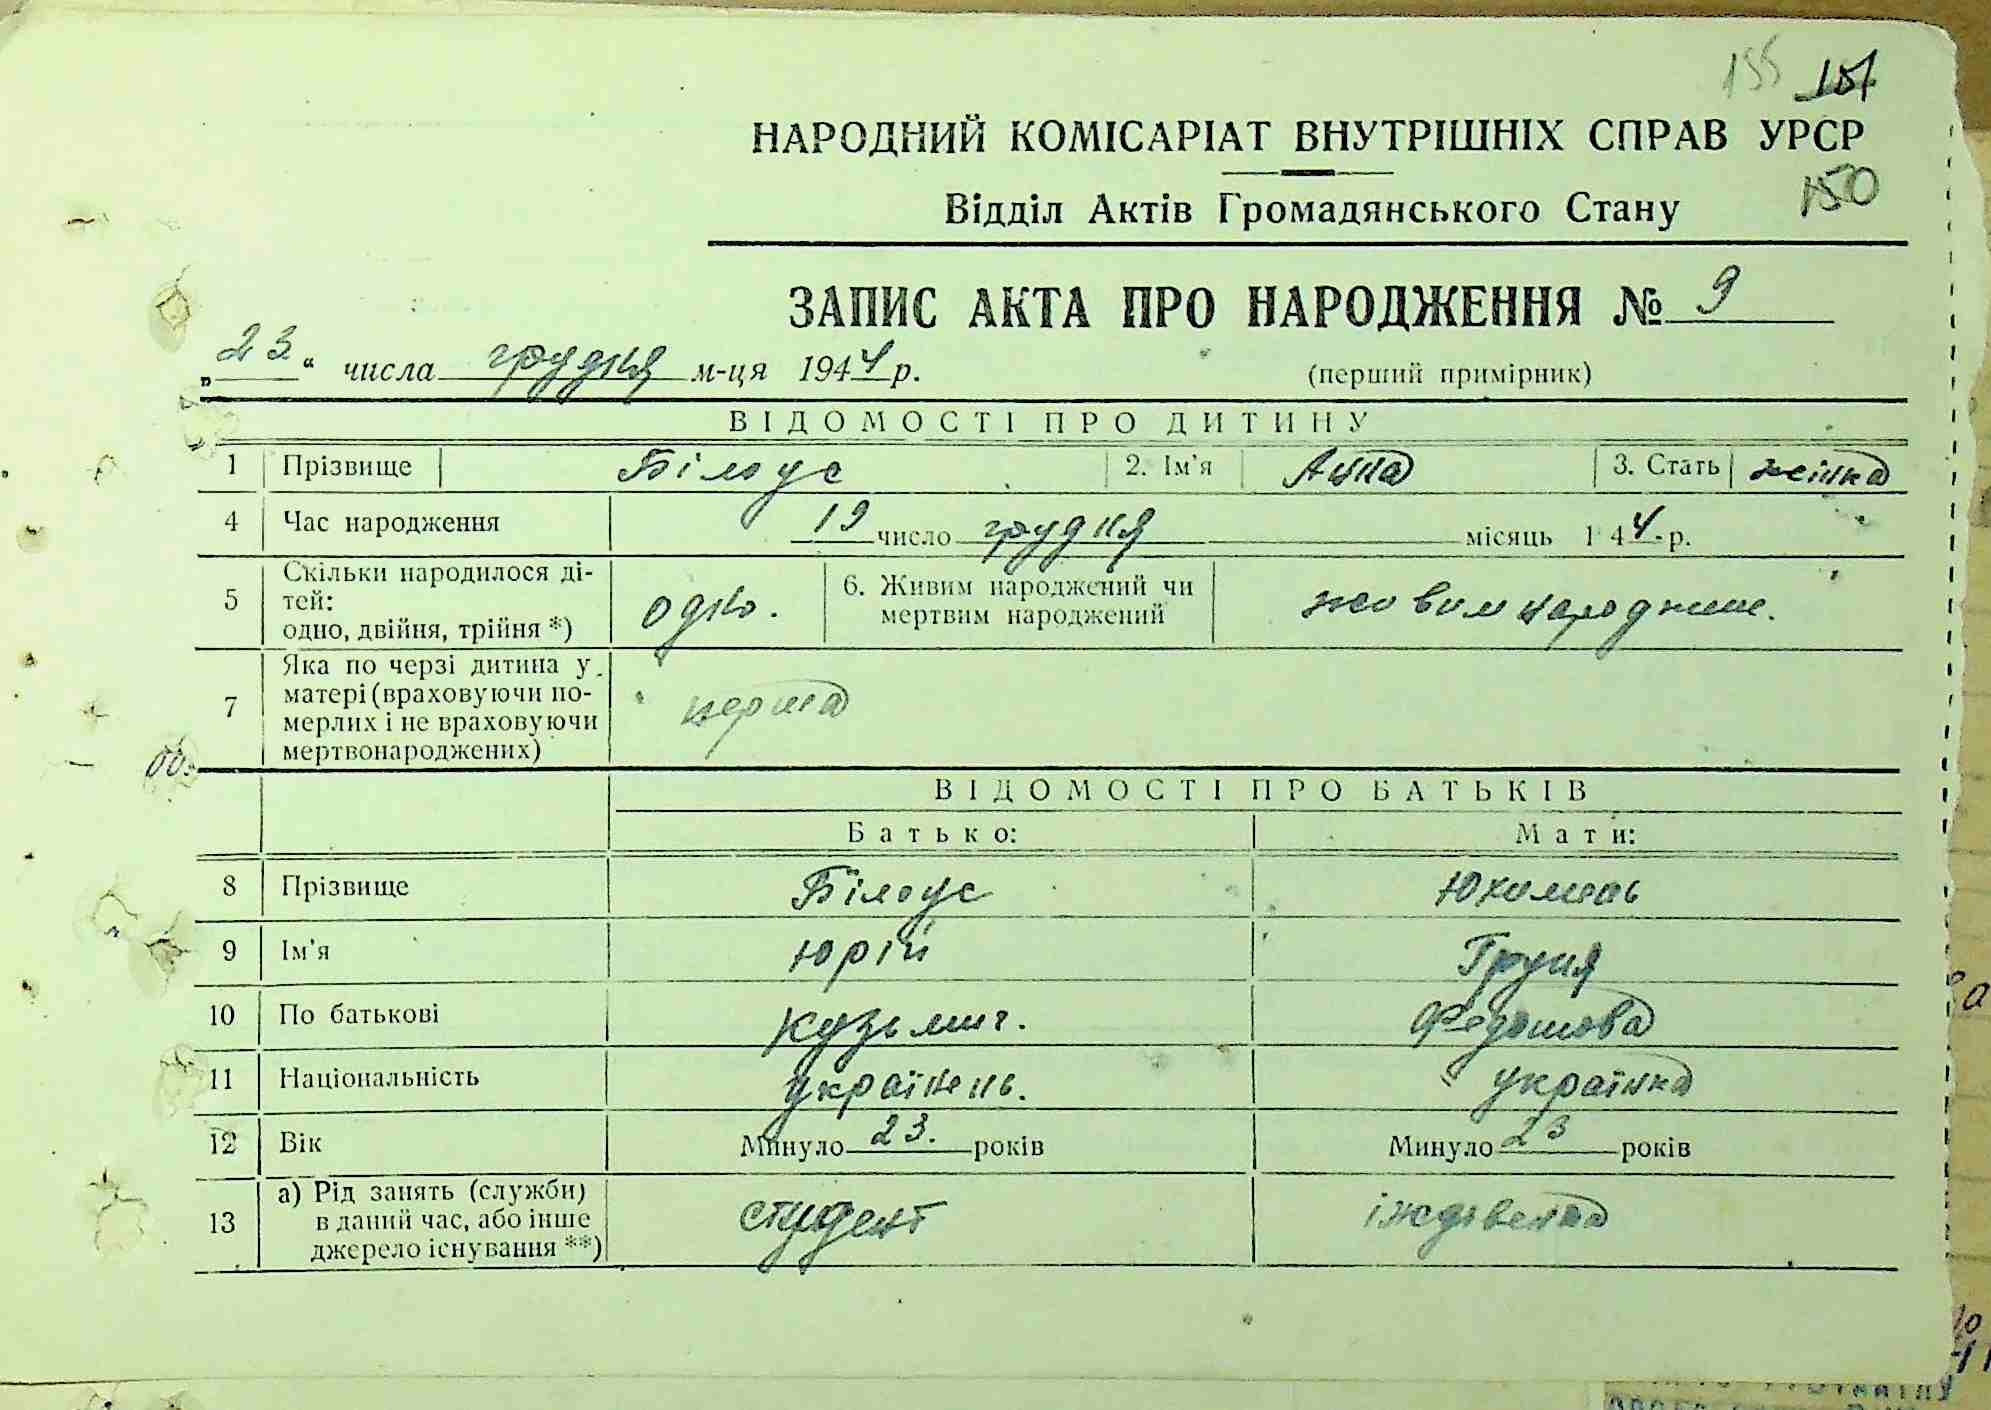 155 151
НАРОДНИЙ КОМІСАРІАТ ВНУТРІШНІХ СПРАВ УРСР
150
Відділ Актів Громадянського Стану
ЗАПИС АКТА ПРО НАРОДЖЕННЯ № 9
„23" числа грудня м-ця 1944 р. (перший примірник)
ВІДОМОСТІ ПРО ДИТИНУ
1 Прізвище Білоус 2. Ім'я Анна 3. Стать жінка
4 Час народження 19 число грудня місяць 1 44 р.
5 Скільки народилося ді-
тей:
одно, двійня, трійня *) одно. 6. Живим народжений чи
мертвим народжений
7 Яка по черзі дитина у
матері (враховуючи по-
мерлих і не враховуючи
мертвонароджених) перша
ВІДОМОСТІ ПРО БАТЬКІВ
Батько: Мати:
8 Прізвище Білоус Юхимець
9 Ім'я Юрій Груня
10 По батькові Кузьмич. Федотова
11 Національність українець. українка
12 Вік Минуло 23. років Минуло 23 років
13 а) Рід занять (служби)
в даний час, або інше
джерело існування **) студент іждівенка